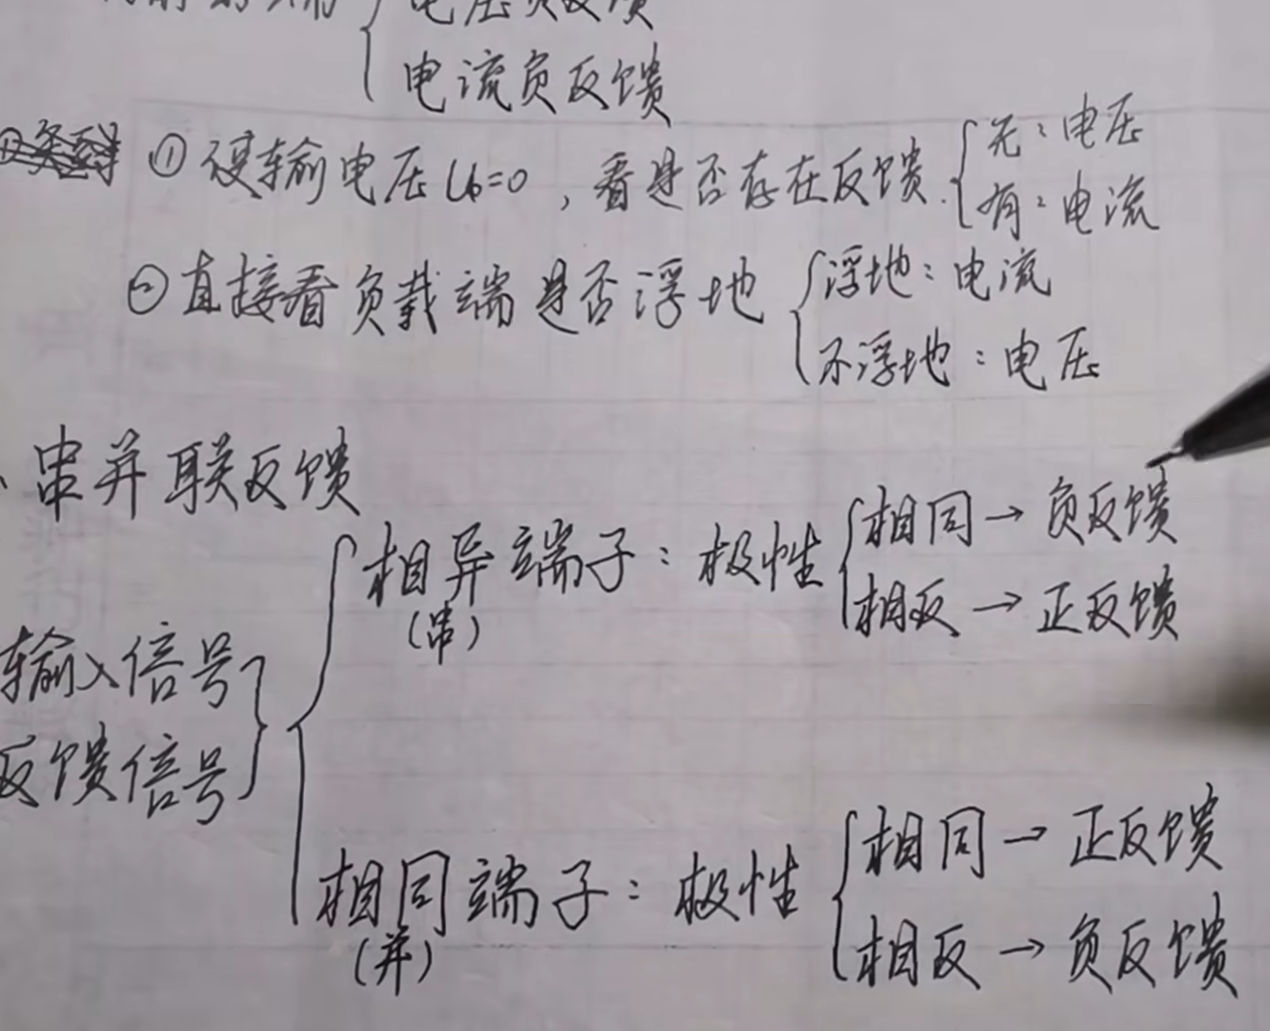 电压负反馈
电流负反馈
① 设输电压 U₀=0,看是否存在反馈.
无:电压
有:电流
② 直接看负载端是否浮地
浮地:电流
不浮地:电压
、串并联反馈
输入信号
反馈信号
相异端子:极性
(串)
相同→负反馈
相反→正反馈
相同端子:极性
(并)
相同→正反馈
相反→负反馈